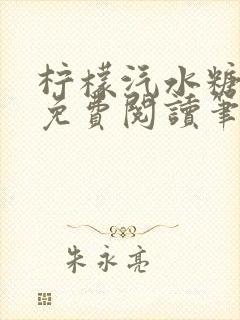 柠檬汽水糖
免費閱讀筆
朱永亮